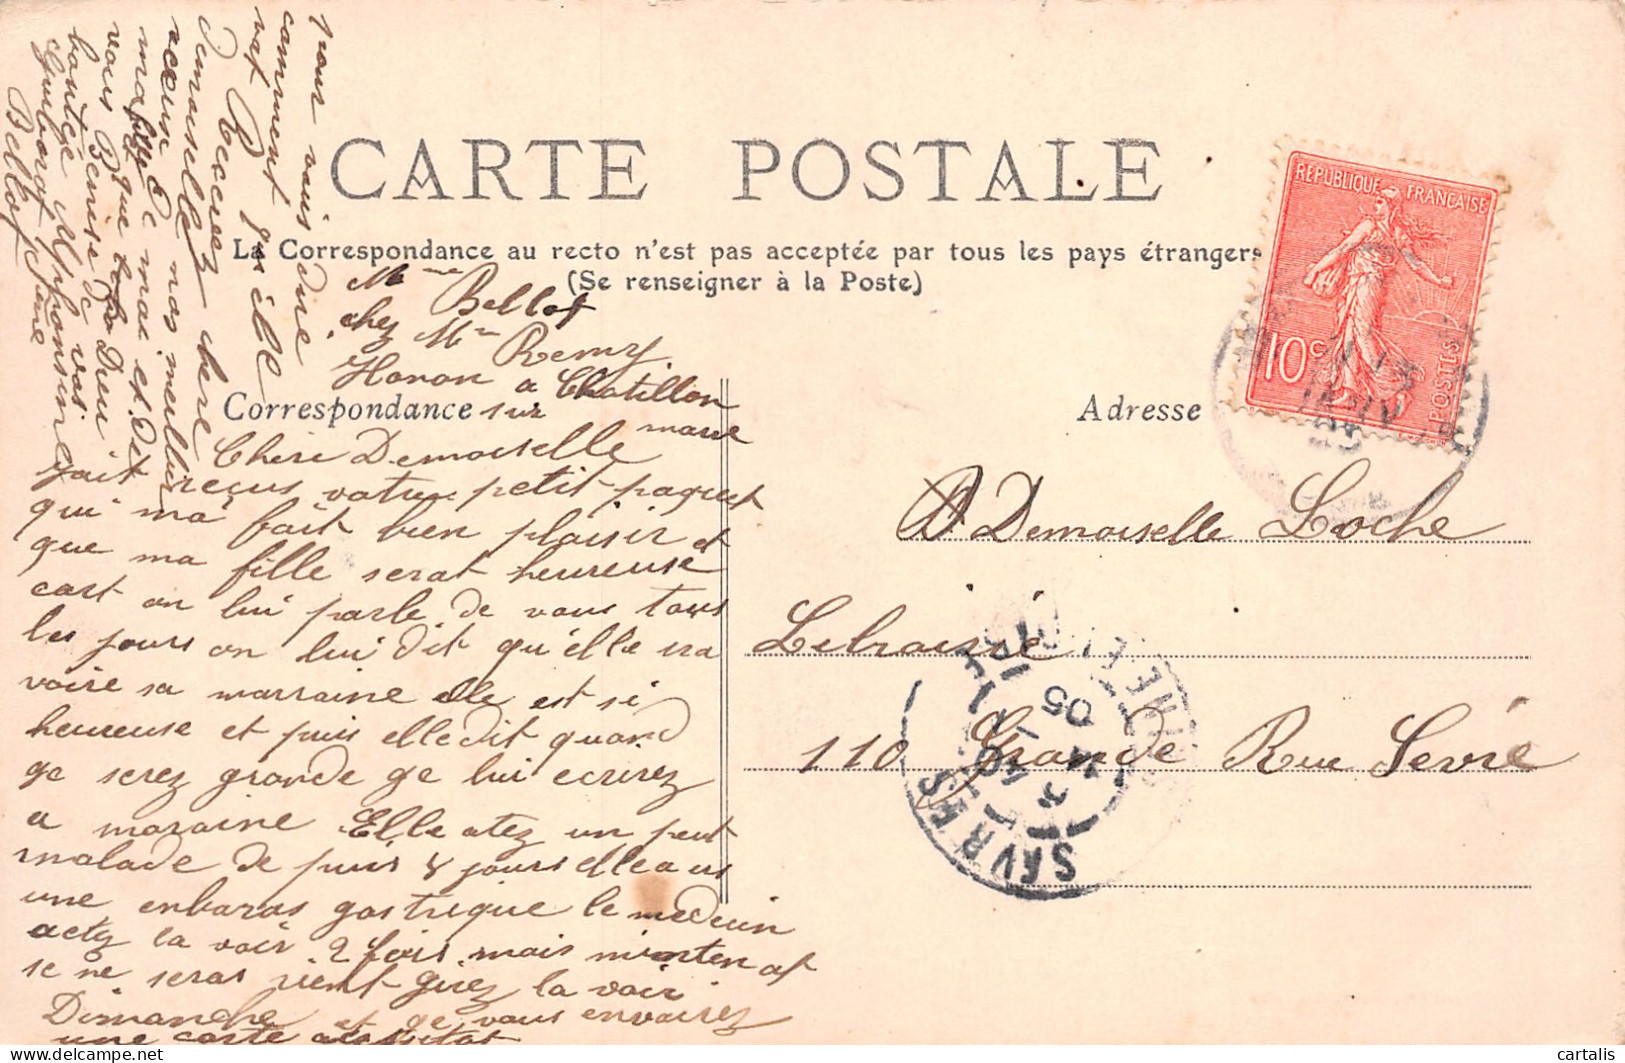 CARTE POSTALE
La Correspondance au recto n'est pas acceptée par tous les pays étrangers
(Se renseigner à la Poste)
REPUBLIQUE FRANÇAISE
10 c
POSTES
Mme Bellot
chez Mme Remy
Honon a Chatillon
sur marne
Correspondance
Adresse
Cheri Demoiselle
jait reçus votre petit paquet
qui ma fait bien plaisir et
que ma fille serat heureuse
cart on lui parle de vous tous
les jours on lui dit qu'elle ira
voire sa marraine elle est si
heureuse et puis elle dit quand
ge serez grande ge lui ecrirez
a maraine Elle atez un peut
malade de puis 8 jours elle a us
une enbaras gastrique le medecin
actez la voir 2 fois mais mintenat
se ne seras rient girez la voir
Dimanche et ge vous envoirez
une carte
pour vous dire
comment
vat
Recevez chere
Demoiselle nos meilleur
de moi et de
ma fille
que le bon Dieu
vous
bontée Alphonsine
Jeanne
Bellot
Demoiselle Loche
Libraire
110 Grande Rue Sevre
SEVRES
14
05